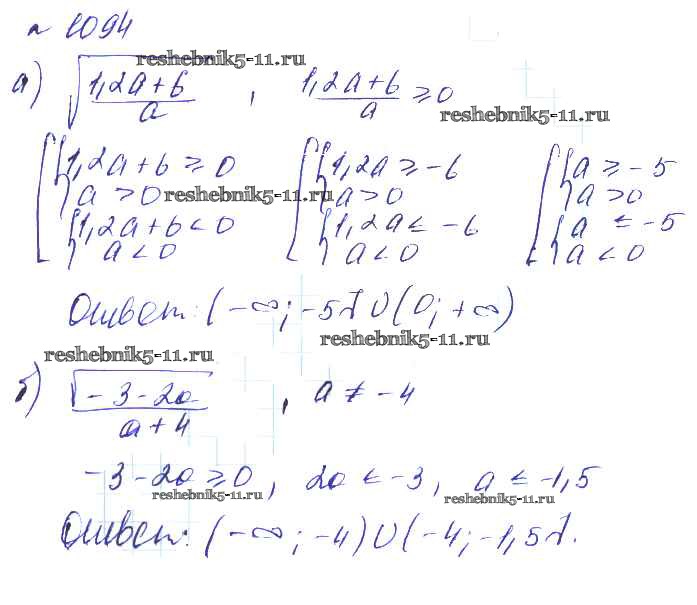 № 1094
reshebnik5-11.ru
а) √((1,2a+6)/a) , (1,2a+6)/a ≥ 0
reshebnik5-11.ru
[ { 1,2a+6 ≥ 0 [ { 1,2a ≥ -6 [ { a ≥ -5
{ a > 0 reshebnik5-11.ru { a > 0 { a > 0
{ 1,2a+6 < 0 { 1,2a ≤ -6 { a ≤ -5
{ a < 0 { a < 0 { a < 0
Ответ: (-∞; -5] U (0; +∞)
reshebnik5-11.ru
reshebnik5-11.ru
б) √(-3-2a)/(a+4) , a ≠ -4
-3-2a ≥ 0, 2a ≤ -3, a ≤ -1,5
reshebnik5-11.ru reshebnik5-11.ru
Ответ: (-∞; -4) U (-4; -1,5].